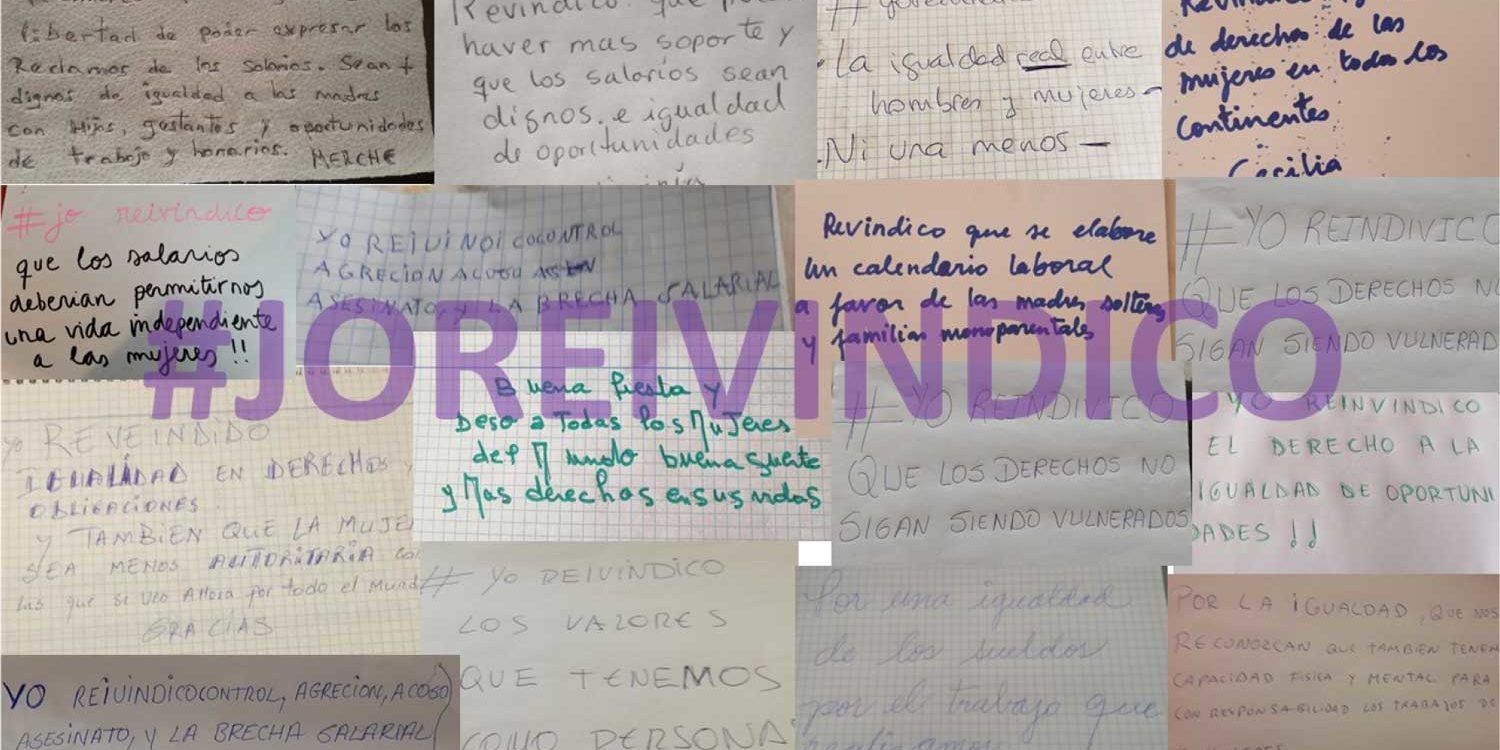 libertad de poder expresar los
Reclamos de los salarios. Sean +
dignos de igualdad a las madres
con Hijos, gestantes y oportunidades
de trabajo y honarios. MERCHE
Revindico que
haver mas soporte y
que los salarios sean
dignos. e igualdad
de oportunidades
#
. La igualdad real entre
hombres y mujeres -
. Ni una menos -
de derechos de las
mujeres en todos los
continentes
Cecilia
#jo reivindico
que los salarios
deberian permitirnos
una vida independiente
a las mujeres !!
YO REIUINDICOCONTROL
AGRECION ACOSO
ASESINATO, y LA BRECHA SALARIAL
Revindico que se elabore
un calendario laboral
a favor de las madres solteras
y familias monoparentales
# YO REINDIVICO
QUE LOS DERECHOS NO
SIGAN SIENDO VULNERAD
#JOREIVINDICO
yo REVEINDIDO
IGUALDAD EN DERECHOS y
OBLIGACIONES
y TAMBIEN QUE LA MUJE
SEA MENOS AUTORITARIA con
las que se veo Ahora por todo el mund
GRACIAS
Buena fiesta y
Deso a Todas los Mujeres
del mundo buena suerte
y Mas derechos en sus vidas
# YO REINDIVICO
QUE LOS DERECHOS NO
SIGAN SIENDO VULNERADOS
YO REINVINDICO
EL DERECHO A LA
IGUALDAD DE OPORTUNI
DADES !!
YO REIUINDICOCONTROL, AGRECION, ACOSO
ASESINATO, Y LA BRECHA SALARIAL
# YO REIVINDICO
LOS VALORES
QUE TENEMOS
COMO PERSONA
Por una igualdad
de los sueldos
por el trabajo que
realizamos
POR LA IGUALDAD, QUE NOS
RECONOZCAN QUE TAMBIEN TENEM
CAPACIDAD FISICA Y MENTAL PARA
CON RESPONSABILIDAD LOS TRABAJOS DE